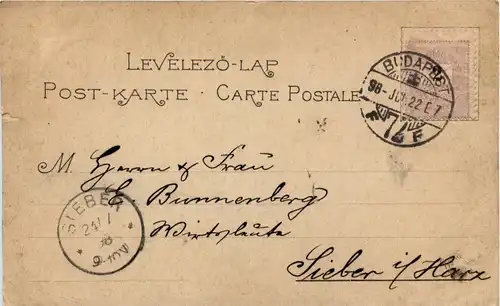 LEVELEZŐ-LAP
POST-KARTE · CARTE POSTALE
BUDAPEST
72
F F
M. Herrn & Frau
Bunnenberg
Wirtsleute
Sieber i/ Harz
SIEBER
24/7
98